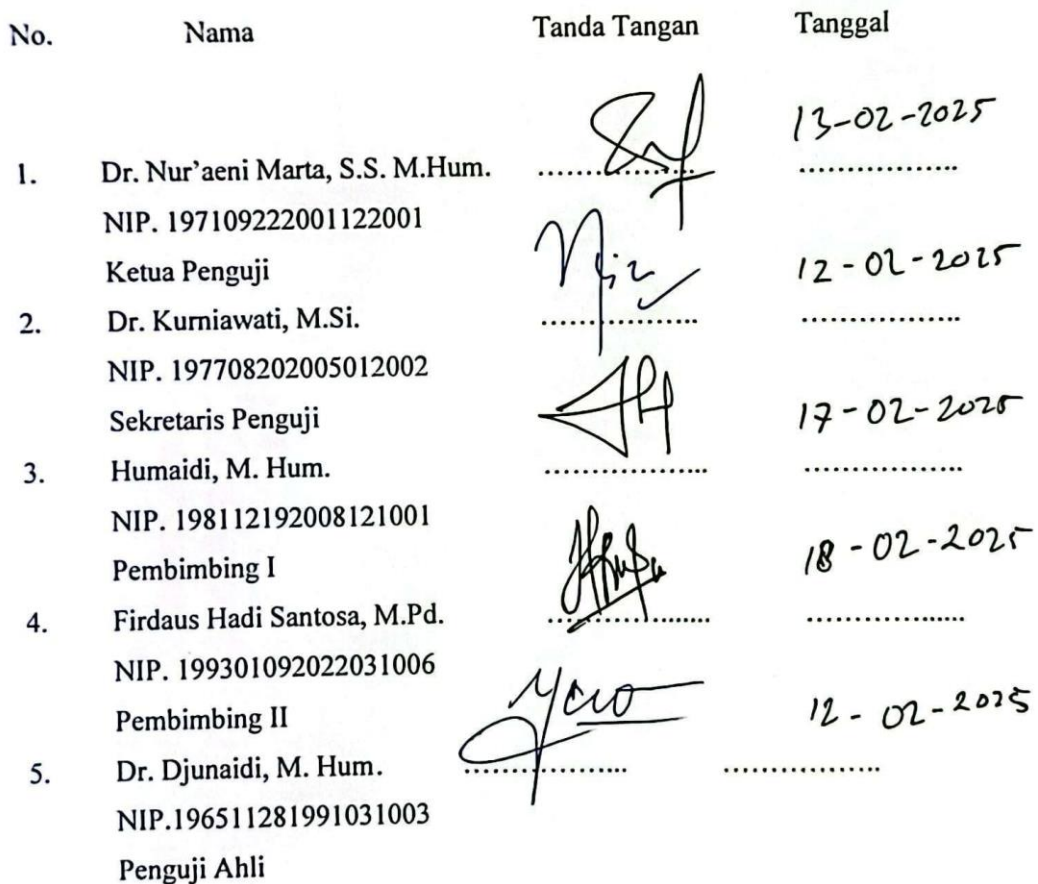 No. Nama Tanda Tangan Tanggal
13-02-2025
1. Dr. Nur’aeni Marta, S.S. M.Hum. .................. .................
NIP. 197109222001122001
Ketua Penguji 12-02-2025
2. Dr. Kurniawati, M.Si. .................. .................
NIP. 197708202005012002
Sekretaris Penguji 17-02-2025
3. Humaidi, M. Hum. .................. .................
NIP. 198112192008121001
Pembimbing I 18-02-2025
4. Firdaus Hadi Santosa, M.Pd. .................. .................
NIP. 199301092022031006
Pembimbing II 12-02-2025
5. Dr. Djunaidi, M. Hum. .................. .................
NIP.196511281991031003
Penguji Ahli